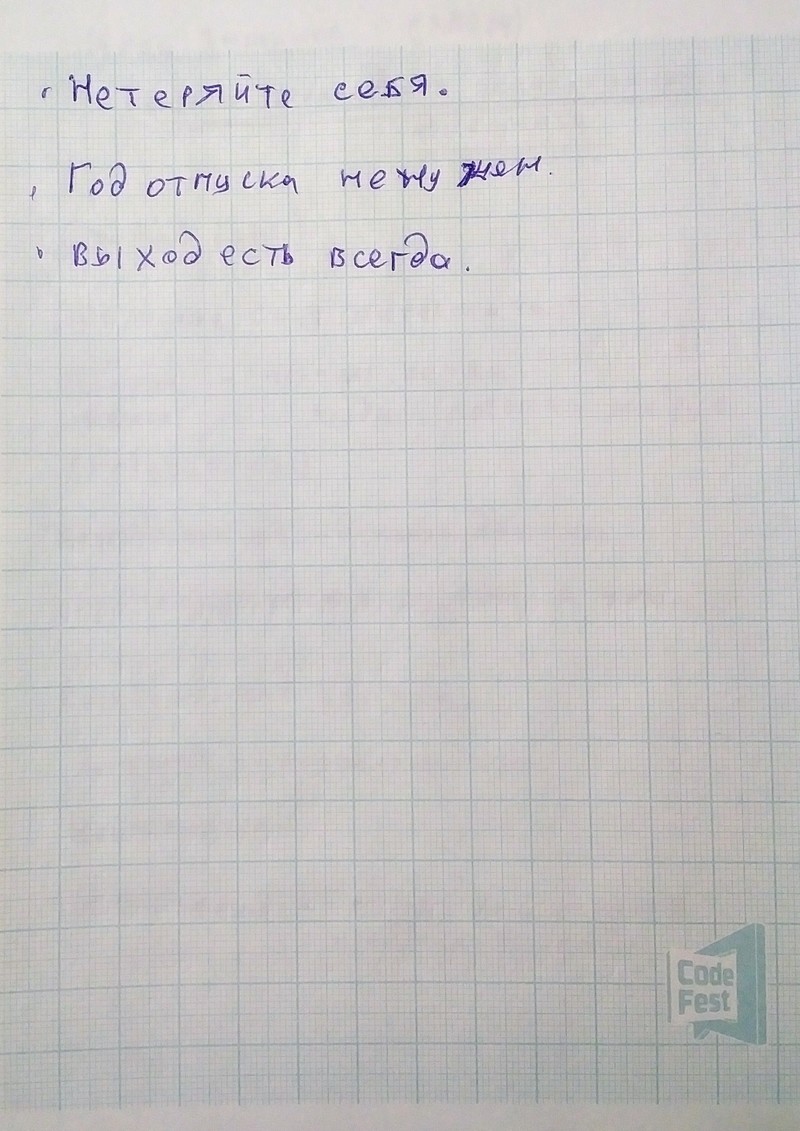 Не теряйте себя.
Год отпуска не нужен.
Выход есть всегда.
Code
Fest